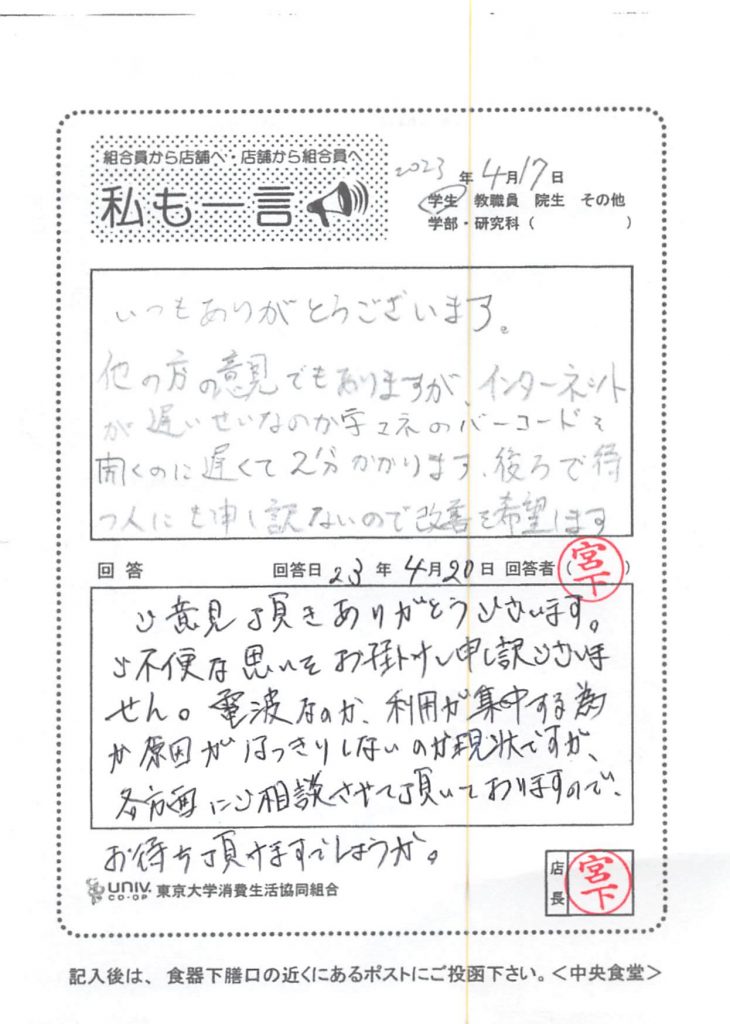 組合員から店舗へ・店舗から組合員へ
私も一言
2023年4月17日
学生 教職員 院生 その他
学部・研究科( )
いつもありがとうございます。
他の方の意見でもありますが、インターネット
が遅いせいなのか学マネのバーコードを
開くのに遅くて2分かかります。後ろで待
つ人にも申し訳ないので改善を希望します
回答 回答日 23年 4月20日 回答者(宮下)
ご意見頂きありがとうございます。
ご不便な思いをお掛けし申し訳ございま
せん。電波なのか、利用が集中する為
か原因がはっきりしないのが現状ですが、
各方面にご相談させて頂いておりますので、
お待ち頂けますでしょうか。
UNIV. CO-OP 東京大学消費生活協同組合
店長 宮下
記入後は、食器下膳口の近くにあるポストにご投函下さい。<中央食堂>